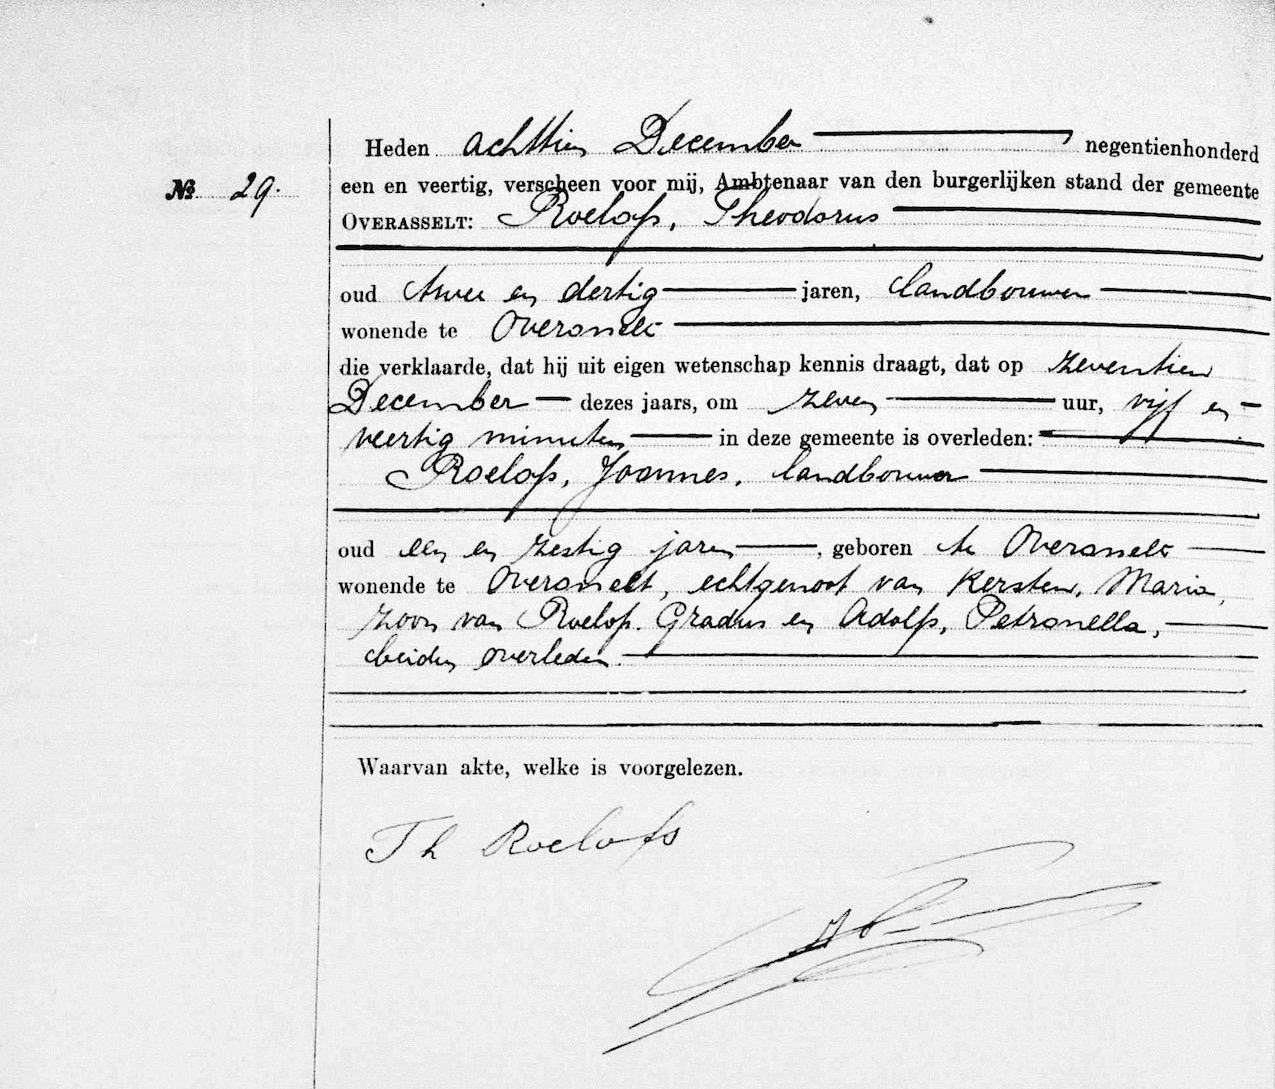 Heden achttien December negentienhonderd
No 29. een en veertig, verscheen voor mij, Ambtenaar van den burgerlijken stand der gemeente
OVERASSELT: Roelofs, Theodorus
oud twee en dertig jaren, landbouwer
wonende te Overasselt
die verklaarde, dat hij uit eigen wetenschap kennis draagt, dat op zeventien
December dezes jaars, om zeven uur, vijf en
veertig minuten in deze gemeente is overleden:
Roelofs, Joannes, landbouwer
oud een en zestig jaren, geboren te Overasselt
wonende te Overasselt, echtgenoot van Kersten, Maria,
zoon van Roelofs. Gradus en Adolfs, Petronella,
beiden overleden.
Waarvan akte, welke is voorgelezen.
Th Roelofs